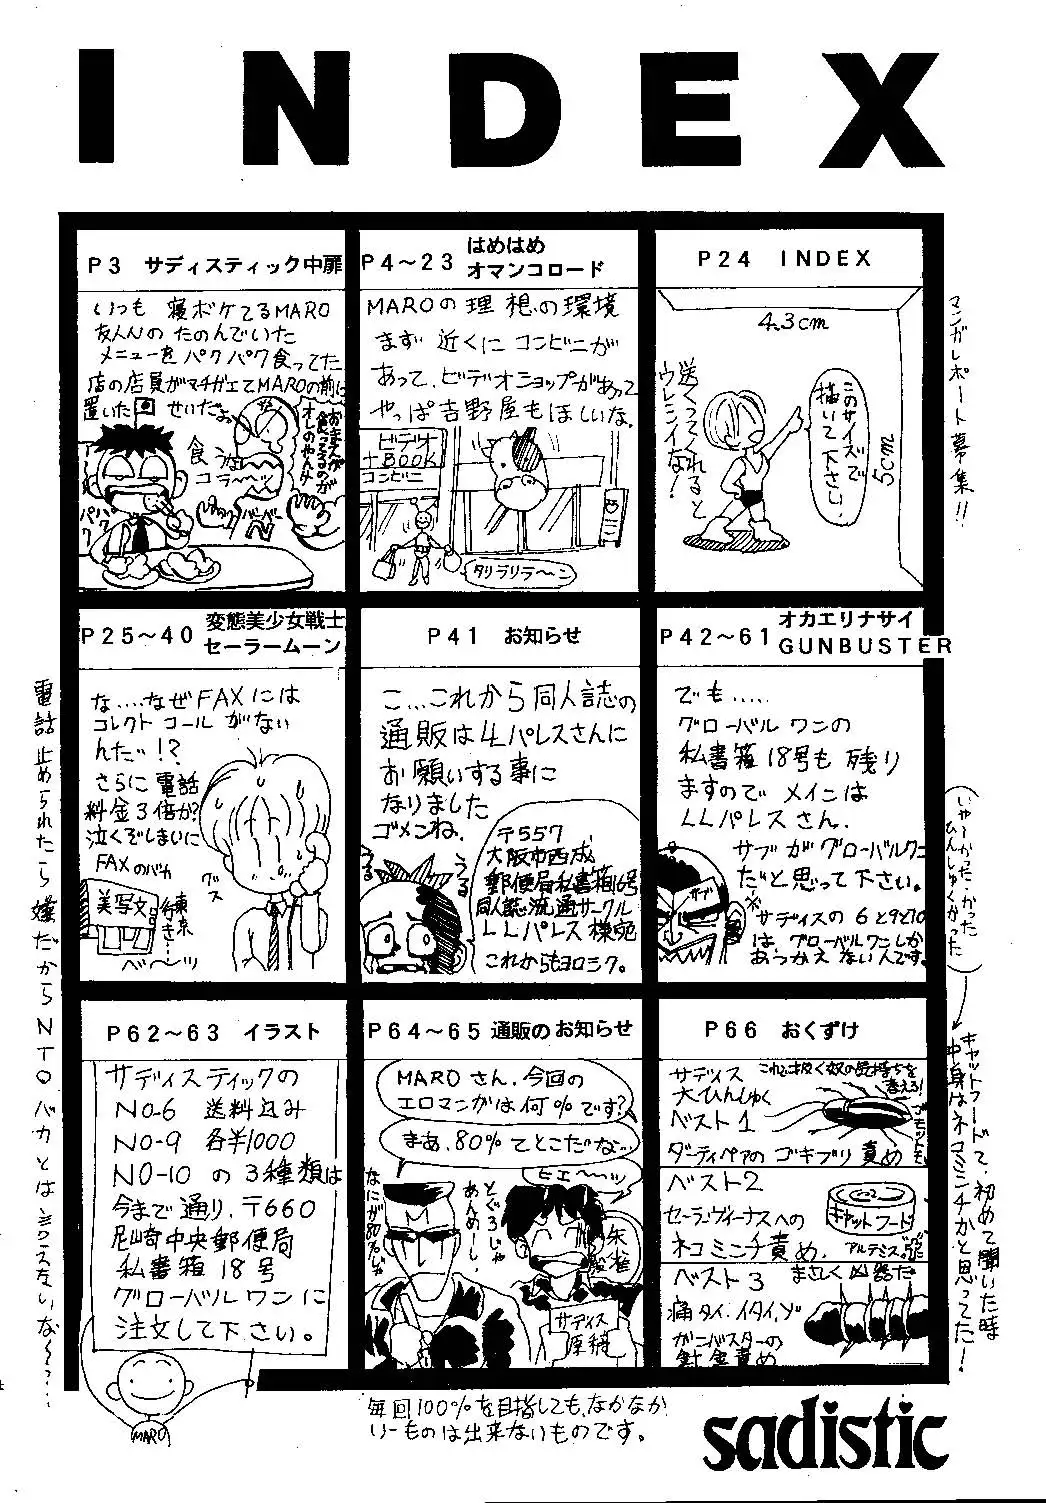 INDEX
P3 サディスティック中扉
いつも 寝ボケてるMARO
友人Nの たのんでいた
メニューを パクパク食ってた
店の店員がマチガエてMAROの前に
置いた せいだぉ
おまえが
食ってるのが
オレのやんけ
食うな
コラ～～ッ
パク
パク
P4～23 はめはめ
オマンコロード
MAROの理想の環境
まず 近くに コンビニが
あって、ビデオショップがあって
やっぱ吉野屋もほしいな。
ビデオ
+BOOK
コンビニ
タリラリラ～ン
P24 INDEX
4.3cm
5cm
このサイズで
描いて下さい。
送ってくれると
ウレシイな!
マンガレポート募集!!
P25～40 変態美少女戦士
セーラームーン
な....なぜFAXには
コレクトコールがない
んだ!?
さらに電話
料金3倍か?
泣くぞしまいに
FAXのバカ
グス
美写文
東京
行き
ベ～ンッ
P41 お知らせ
こ...これから同人誌の
通販はLLパレスさんに
お願いする事に
なりました
ゴメンね。
うる
うる
〒557
大阪市西成
郵便局私書箱16号
同人誌流通サークル
LLパレス 様宛
これからもヨロシク。
P42～61 オカエリナサイ
GUNBUSTER
でも.....
グローバルワンの
私書箱18号も残り
ますので メインは
LLパレスさん。
サブがグローバルワン
だと思って下さい。
サブ
※サディスの6と9と10
は、グローバルワンしか
あつかえないんです。
電話止められたら嫌だからNTOバカとは言えないな～～...
(いゃーかった・かった
ひんしゅくかった)
キャットフードって、初めて聞いた時
中身はネコミンチかと思ってた!
P62～63 イラスト
サディスティックの
NO-6 送料込み
NO-9 各¥1000
NO-10 の3種類は
今まで通り、〒660
尼崎中央郵便局
私書箱 18号
グローバルワンに
注文して下さい。
MARO
P64～65 通販のお知らせ
MAROさん、今回の
エロマンガは何%です?
まあ、80%てとこだな...
ヒエ～～ッ
なにが80%じゃ
とぐろじゃ
あんめーし。
朱雀
サディス
原稿
毎回100%を目指しても、なかなか
りーものは出来ないものです。
P66 おくずけ
サディス
大ひんしゅく
ベスト1
ダーティペアの ゴキブリ責め
これは抜く奴の気持ちを
考える!
ベスト2
セーラーヴィーナスへの
ネコミンチ責め.
キャットフード
アルテミス
ベスト3 まさしく凶器だ
痛タイ、イタイ、ゾ
ガンバスターの
針金責め
sadistic